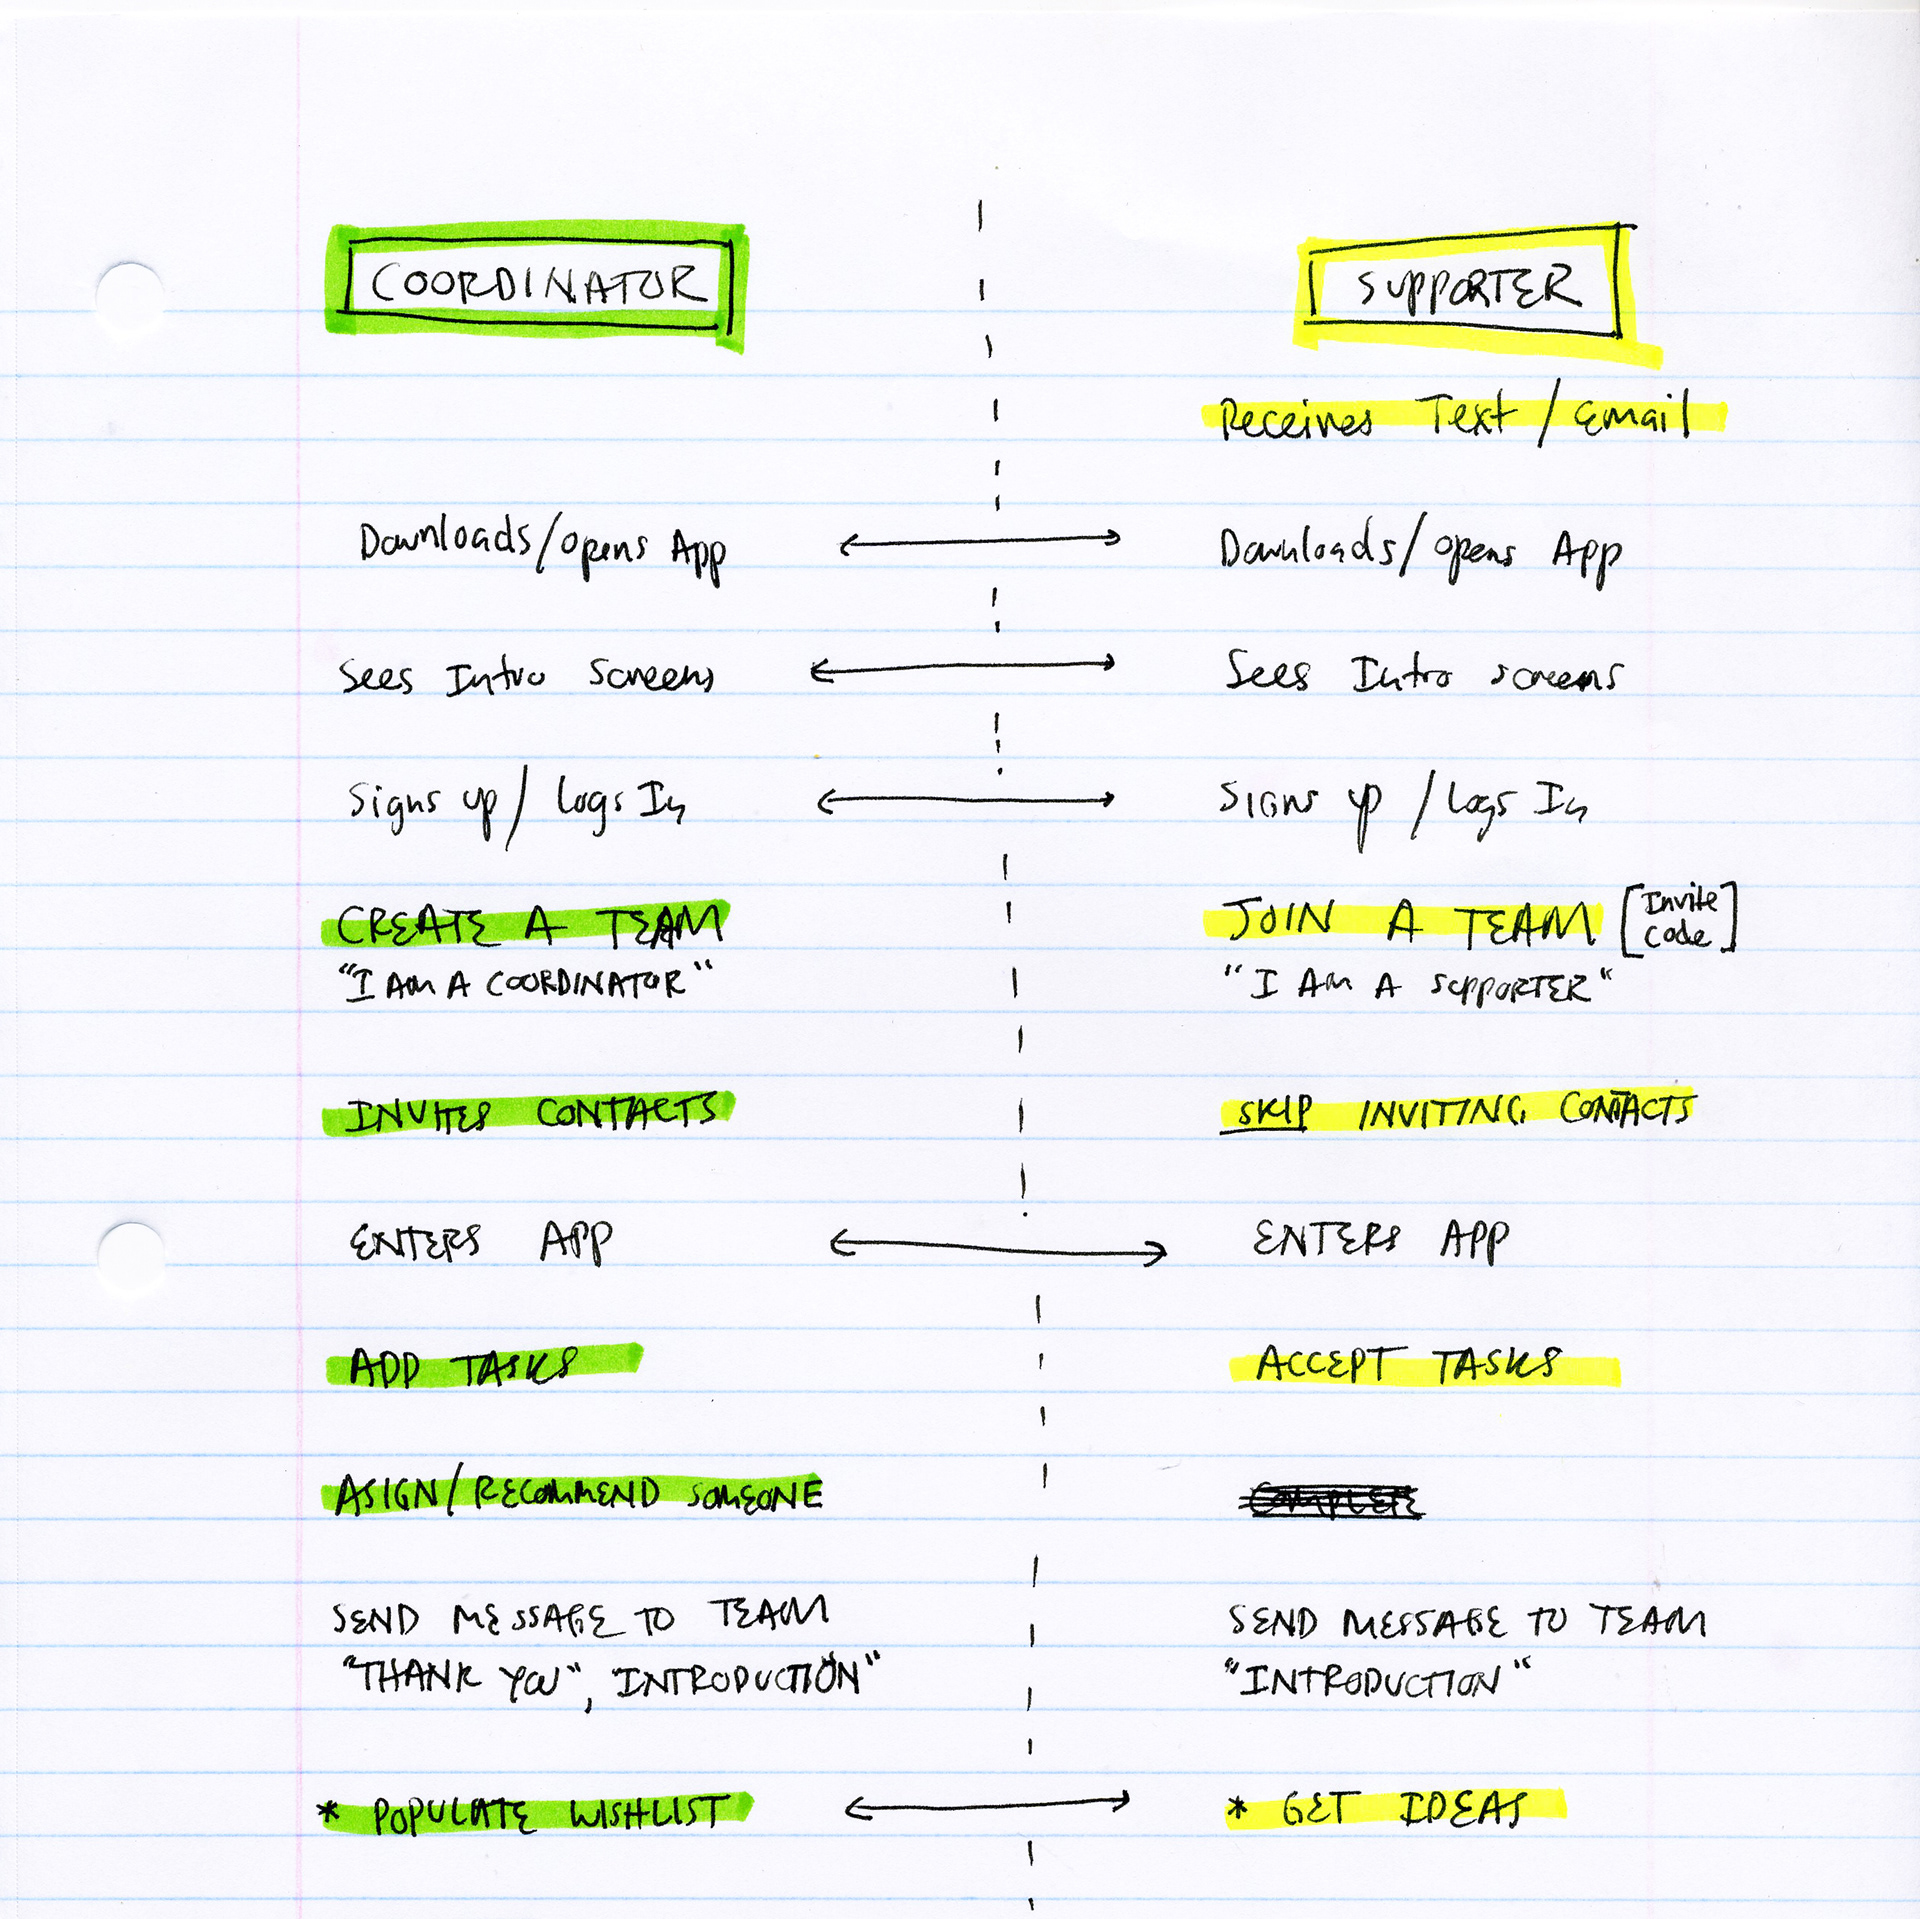 COORDINATOR
SUPPORTER
Receives Text / Email
Downloads/opens App
Downloads/opens App
Sees Intro Screens
Sees Intro screens
Signs up / Logs In
Signs up / Logs In
CREATE A TEAM
JOIN A TEAM [Invite Code]
"I AM A COORDINATOR"
"I AM A SUPPORTER"
INVITES CONTACTS
SKIP INVITING CONTACTS
ENTERS APP
ENTERS APP
ADD TASKS
ACCEPT TASKS
ASIGN/RECOMMEND SOMEONE
SEND MESSAGE TO TEAM
SEND MESSAGE TO TEAM
"THANK YOU", INTRODUCTION"
"INTRODUCTION"
* POPULATE WISHLIST
* GET IDEAS